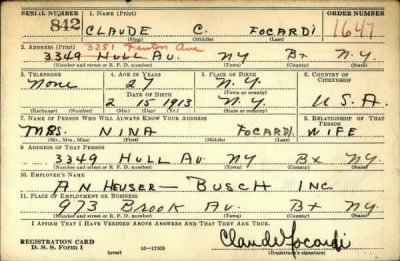 SERIAL NUMBER 1. Name (Print) ORDER NUMBER
842 CLAUDE C. FOCARDI 1647
(First) (Middle) (Last)
2. Address (Print) 3251 Fenton Ave
3349 HULL AV. NY Bx N.Y.
(Number and street or R. F. D. number) (Town) (County) (State)
3. Telephone 4. Age in Years 5. Place of Birth 6. Country of Citizenship
None 27 N.Y.
(Town or county)
Date of Birth
2 15 1913 N.Y. U.S.A.
(Exchange) (Number) (Mo.) (Day) (Yr.) (State or country)
7. Name of Person Who Will Always Know Your Address 8. Relationship of That Person
MRS. NINA FOCARDI WIFE
(Mr., Mrs., Miss) (First) (Middle) (Last)
9. Address of That Person
3349 HULL AV NY Bx N.Y.
(Number and street or R. F. D. number) (Town) (County) (State)
10. Employer's Name
ANHEUSER—BUSCH INC
11. Place of Employment or Business
973 BROOK AV. Bx NY
(Number and street or R. F. D. number) (Town) (County) (State)
I Affirm That I Have Verified Above Answers and That They Are True.
REGISTRATION CARD
D. S. S. Form 1 (over) 16—17105 Claude Focardi
(Registrant's signature)